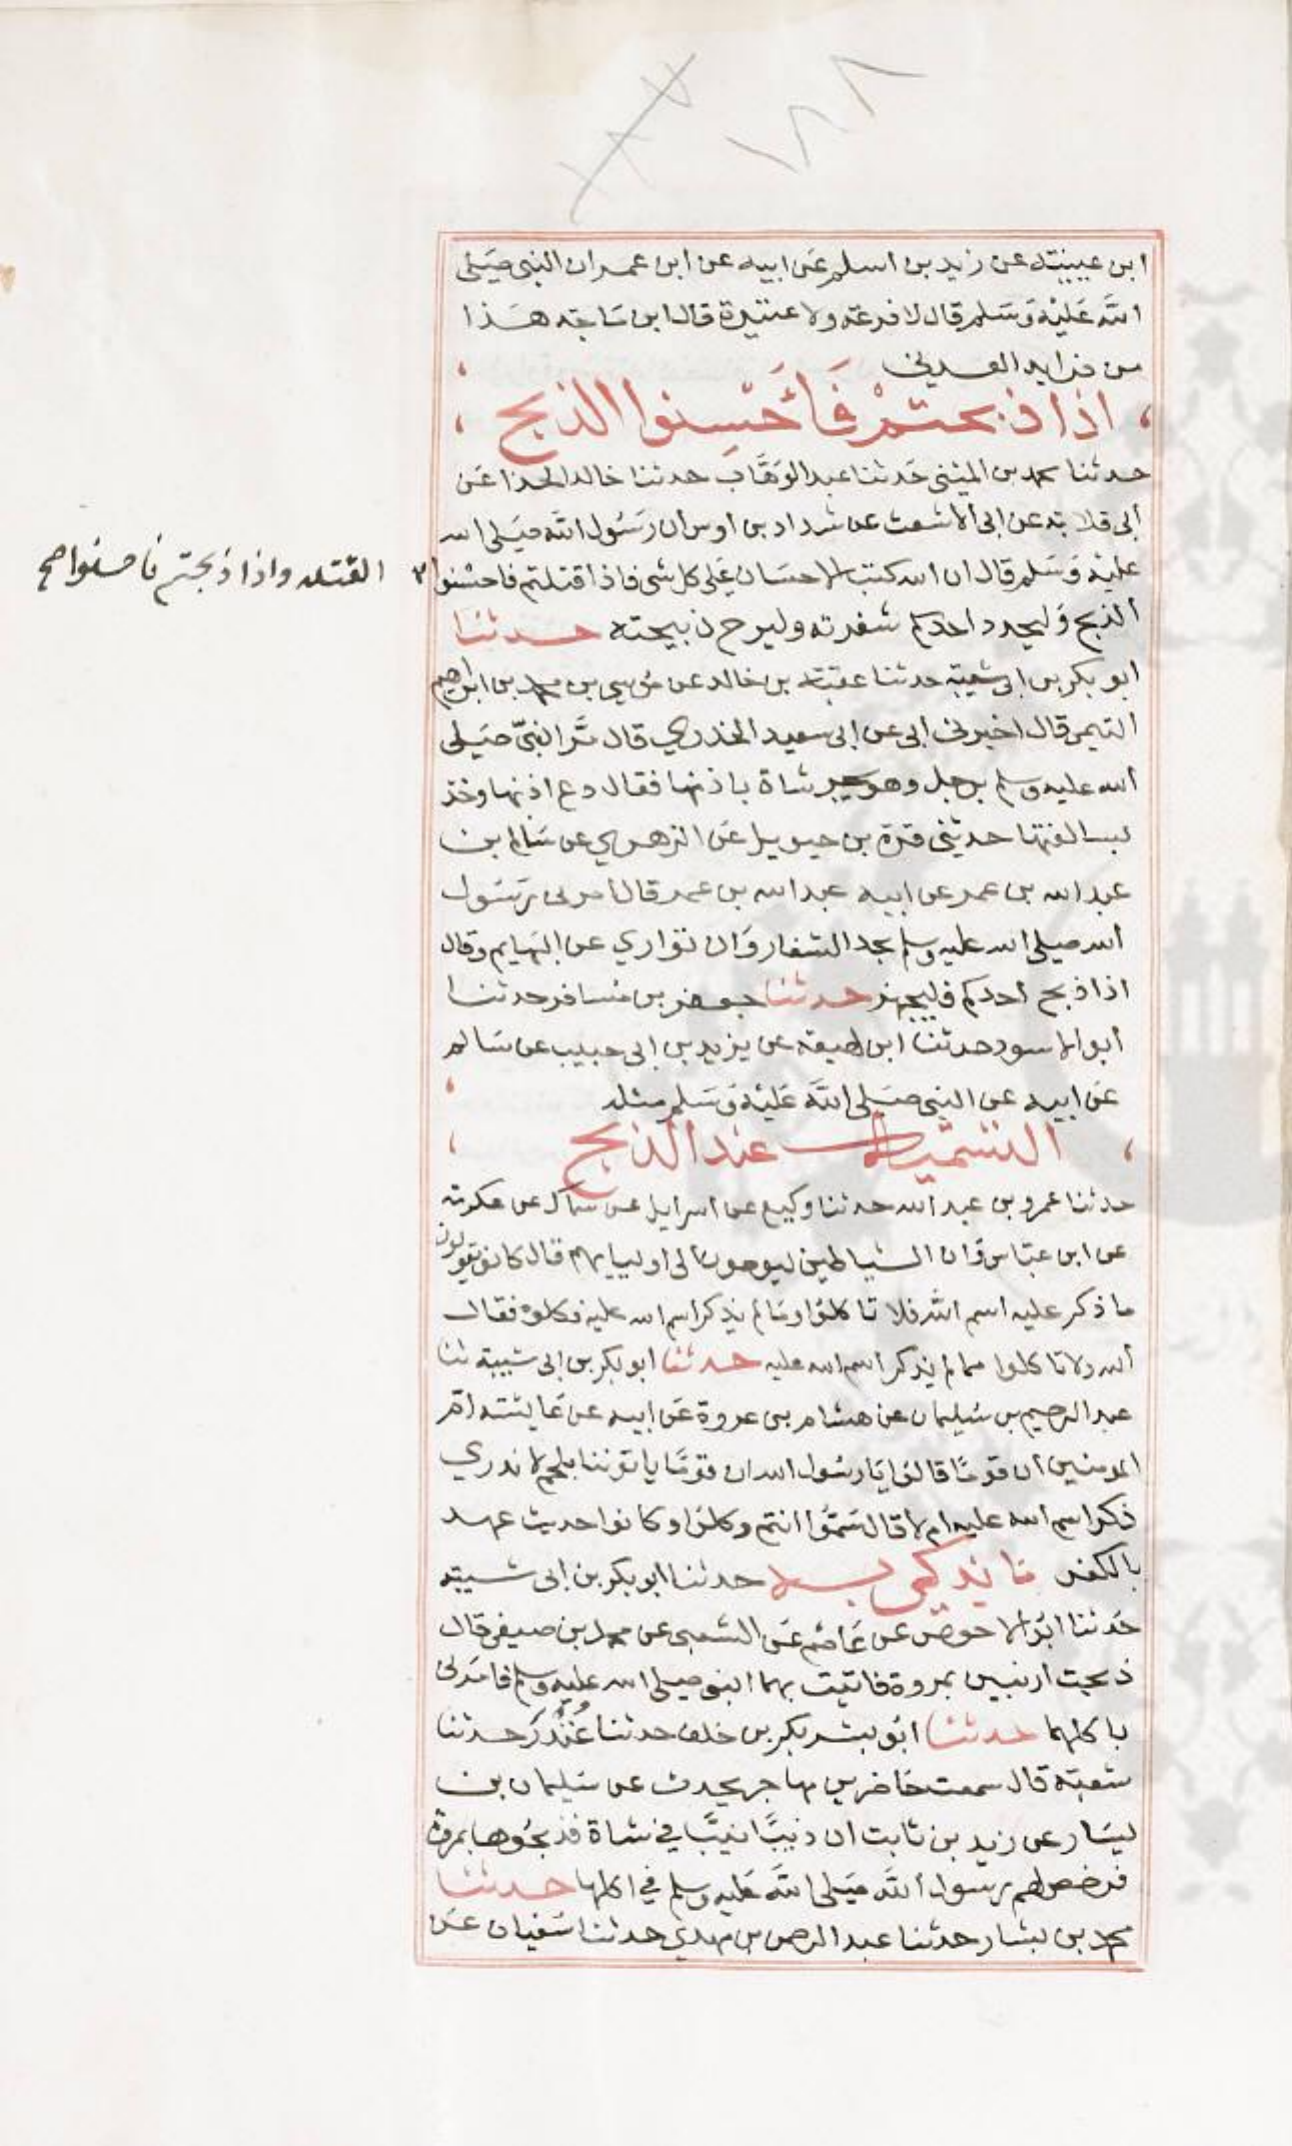 ابن عيينة عن زيد بن اسلم عن ابيه عن ابن عمر ان النبي صَلى
الله عَليْه وَسَلم قال لا فرعة ولا عتيرة قال ابن مَاجه هَذا
من فرايد العدني
اذا ذبحتمْ فَأحْسِنوا الذبح
حدثنا محمد بن المثنى حَدثنا عبد الوَهَّاب حدثنا خالد الحذا عَن
أبي قلابة عن ابي الاشعث عن شداد بن اوس ان رَسُول الله صَلى الله
عليْه وَسَلم قال ان الله كتب الاحسَان عَلى كل شي فاذا قتلتم فاحسنوا
القتله واذا ذبحتم فاحسنوا صح
الذبح وَليحدد احدكم شفرته وليرح ذبيحته حدثنا
ابو بكر بن ابي شيبة حدثنا عقبة بن خالد عن مُوسي بن محمد بن ابراهيم
التيمي قال اخبرني ابي عن ابي سعيد الخدري قال مَّر النبيّ صَلى
الله عليه وسلم برجل وهو يجر شاة باذنها فقال دع اذنها وخذ
بسالفتها حدثني قرة بن حيويل عَن الزهري عن سَالم بن
عبد الله بن عمر عن ابيه عبد الله بن عمر قال أمر ني رَسُول
الله صلى الله عليه وسلم بحد الشفار وَان تواري عن البهايم وقال
اذا ذبح احدكم فليجهز حدثنا جعفر بن مسافر حدثنا
أبو الاسود حدثنا ابن لهيعة عن يزيد بن ابي حبيب عن سَالم
عَن ابيه عن النبي صَلى الله عَليْه وَسَلم مثله
التسمية عند الذبح
حدثنا عمرو بن عبد الله حدثنا وكيع عن اسرايل عن سماك عن عكرمة
عن ابن عبّاس وَان الشياطين ليوحون الى اوليايهم قال كانو يقولون
ما ذكر عليه اسم الله فلا تاكلوا ومَا لم يذكر اسم الله عليه فكلوه فقال
الله ولا تاكلوا مما لم يذكر اسم الله عليه حدثنا ابو بكر بن ابي شيبة ثنا
عبد الرحيم بن سُليمان عن هشام بن عروة عَن ابيه عن عَايشة امّ
المومنين أن قومًا قالوا يَا رسُول الله ان قومًا ياتوننا بلحم لا ندري
ذكر اسم الله عليه ام لا قال سَمُّوا انتم وكلوا وكانوا حديث عهد
بالكفر مَا يذكي به حدثنا ابو بكر بن ابي شيبه
حَدثنا ابو الاحوص عن عَاصم عَن الشعبي عن محمد بن صيفي قال
ذبحت ارنبين بمروة فاتيت بهما النبي صلى الله عليه وسلم فامَرني
باكلهما حدثنا ابُو بشر بكر بن خلف حدثنا غُنْدُرَ حدثنا
شعبة قال سمعت حَاضر بن مهاجر يحدث عن سُليمان بن
يسَار عن زيد بن ثابت ان ذيبًا نيَّبَ في شاة فذبحُوها بمروة
فرخص لهم رسُول الله صَلى الله عَليه وسلم في اكلها حدثنا
محمد بن بشار حدثنا عبد الرحمن بن مهدي حدثنا سُفيان عَن